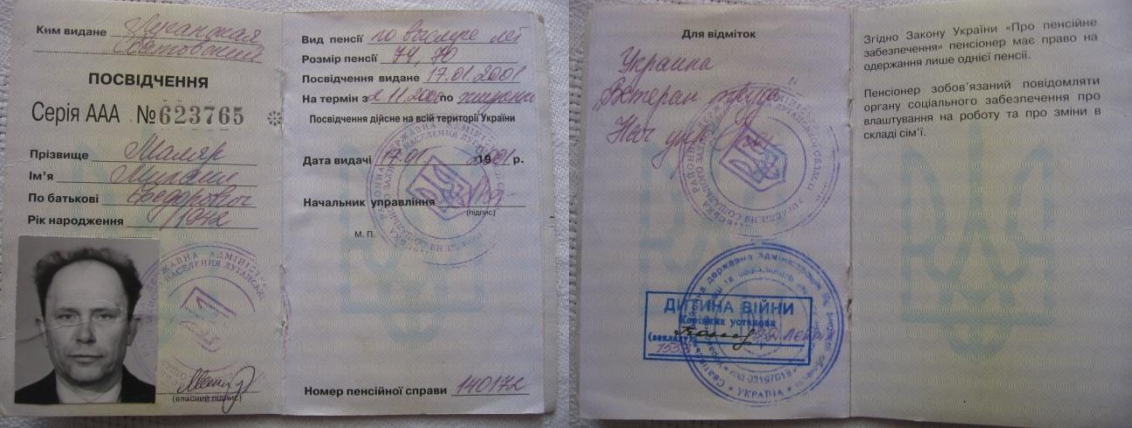 Ким видане Луганская
Сватовский
ПОСВІДЧЕННЯ
Серія ААА № 623765
Прізвище Маляр
Ім'я Михаил
По батькові Федорович
Рік народження 1942
(власний підпис)
Вид пенсії по выслуге лет
Розмір пенсії 74,70
Посвідчення видане 17.01.2001
На термін з по
Посвідчення дійсне на всій території України
Дата видачі 17.01 р.
Начальник управління
(підпис)
М. П.
Номер пенсійної справи
Для відміток
Украина
Ветеран труда
Нач упр
ДИТИНА ВІЙНИ
Керівник установи
(закладу)
УКРАЇНА
Згідно Закону України «Про пенсійне
забезпечення» пенсіонер має право на
одержання лише однієї пенсії.
Пенсіонер зобов'язаний повідомляти
органу соціального забезпечення про
влаштування на роботу та про зміни в
складі сім'ї.